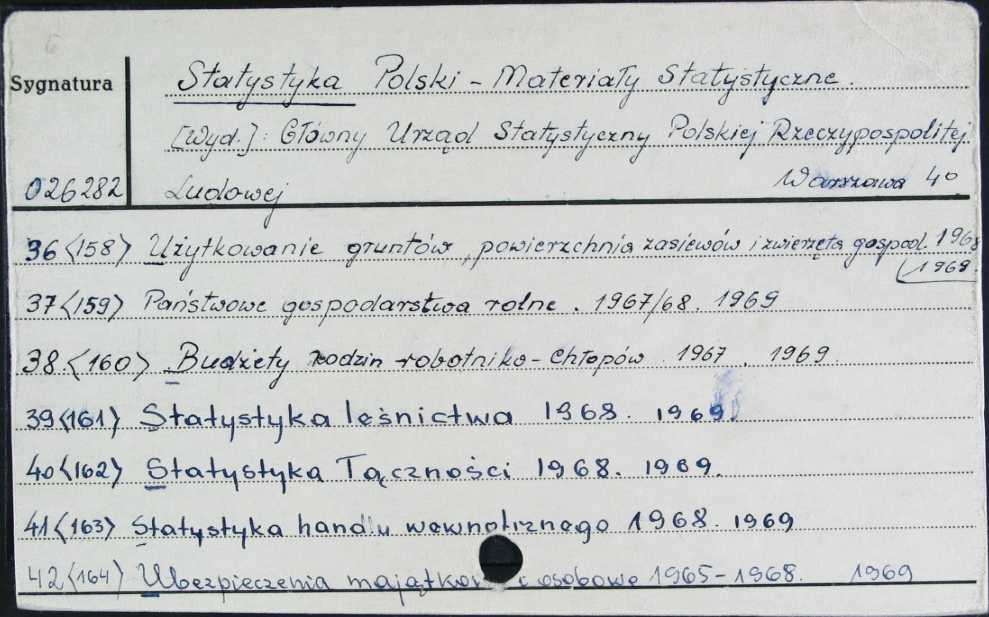 Sygnatura
Statystyka Polski - Materiały Statystyczne.
[Wyd.]: Główny Urząd Statystyczny Polskiej Rzeczypospolitej
026282 Ludowej Warszawa 40
36 <158> Użytkowanie gruntów, powierzchnia zasiewów i zwierzęta gospod. 1968
1969
37 <159> Państwowe gospodarstwa rolne. 1967/68. 1969
38. <160> Budżety rodzin robotniko-chłopów 1967. 1969.
39 <161> Statystyka leśnictwa 1968. 1969.
40 <162> Statystyka Łączności 1968. 1969.
41 <163> Statystyka handlu wewnętrznego 1968. 1969
42 <164> Ubezpieczenia majątkowe i osobowe 1965-1968. 1969